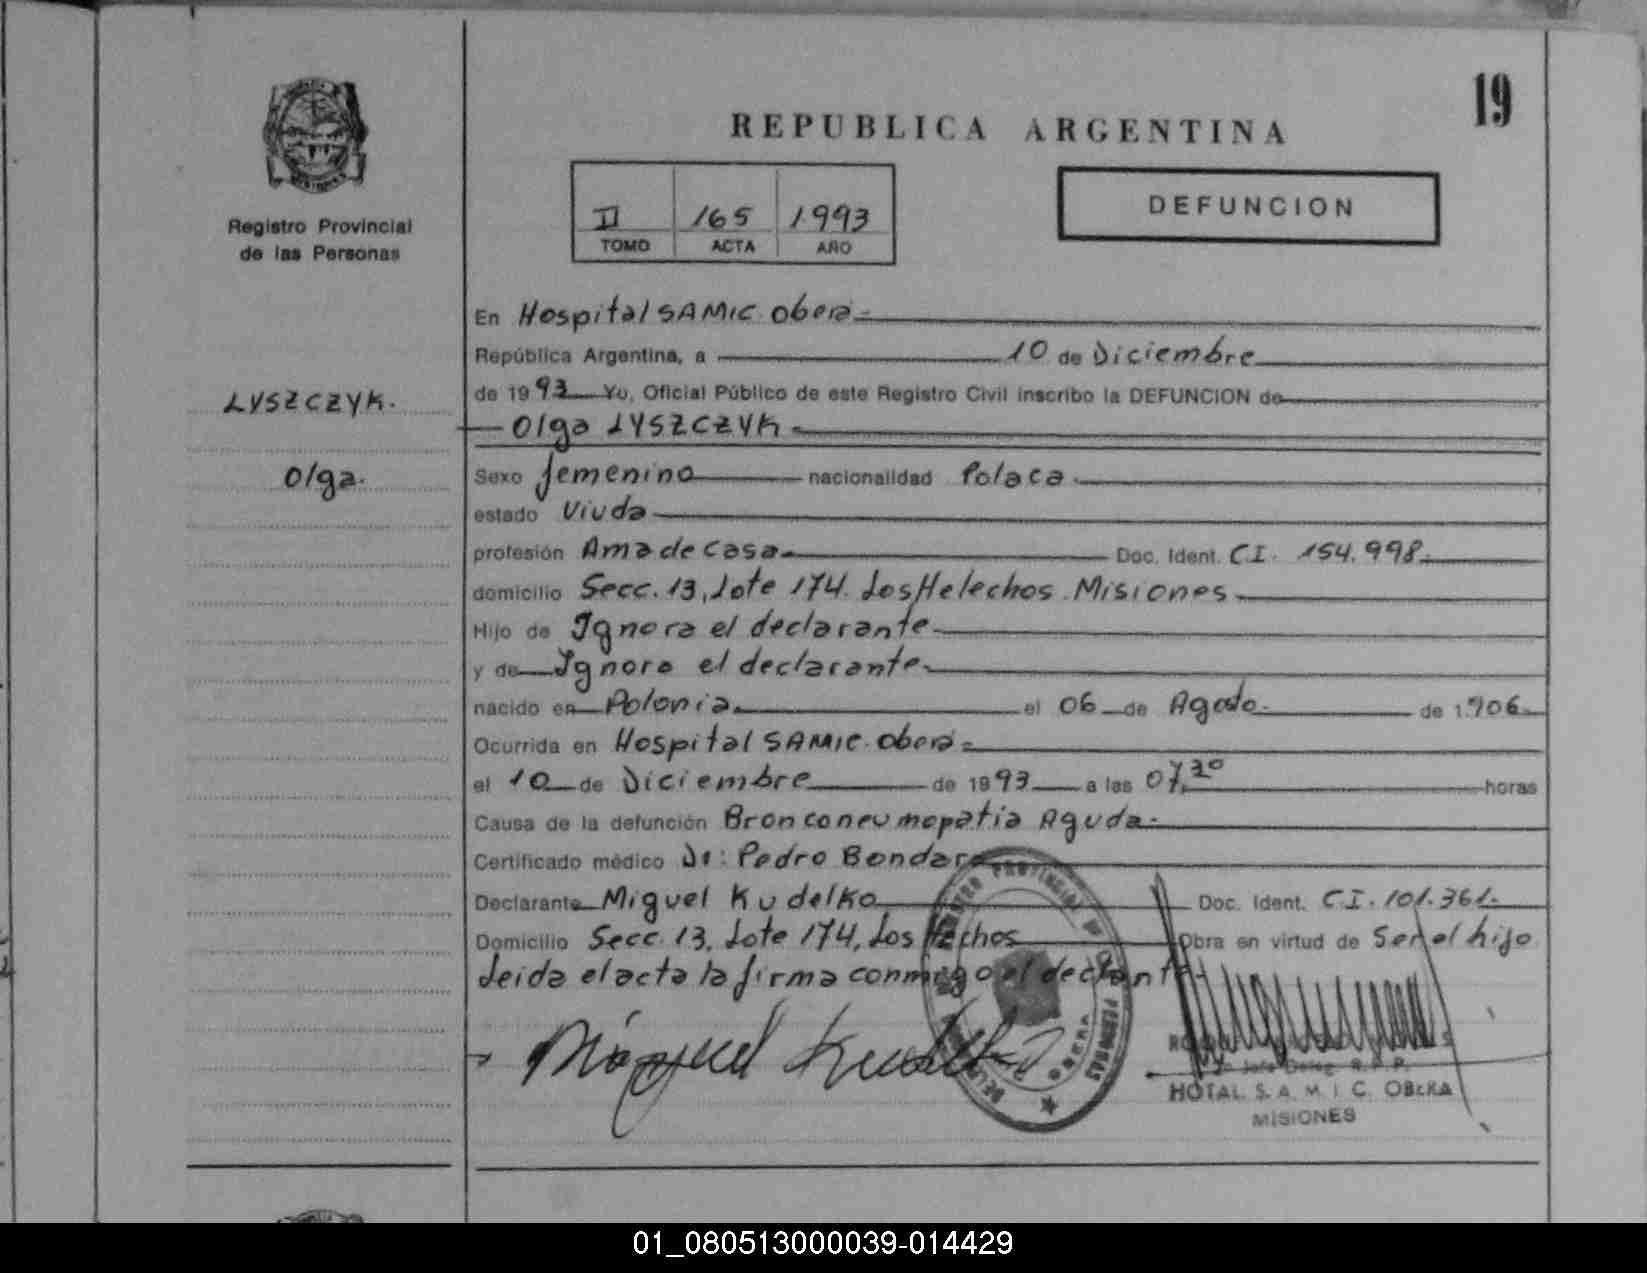 19
REPUBLICA ARGENTINA
Registro Provincial
de las Personas
II 165 1993
TOMO ACTA AÑO
DEFUNCION
LYSZCZYK.
Olga.
En Hospital SAMIC. Oberá
República Argentina, a 10 de Diciembre
de 1993 Yo, Oficial Público de este Registro Civil inscribo la DEFUNCION de
Olga LYSZCZYK
Sexo femenino nacionalidad Polaca
estado Viuda
profesión Ama de casa Doc. Ident. C.I. 154.998
domicilio Secc. 13, Lote 174. Los Helechos. Misiones
Hijo de Ignora el declarante
y de Ignora el declarante
nacido en Polonia el 06 de Agosto de 1.906
Ocurrida en Hospital SAMIC. Oberá
el 10 de Diciembre de 1993 a las 07,30 horas
Causa de la defunción Bronconeumopatia Aguda
Certificado médico Dr: Pedro Bondar
Declarante Miguel Kudelko Doc. Ident. C.I. 101.361
Domicilio Secc. 13, Lote 174, Los Hechos Obra en virtud de Ser el hijo
Leida el acta la firma conmigo el declante
Miguel Kudelko
OBERA
HOTAL. S. A. M. I C. OBERA
MISIONES
01_080513000039-014429